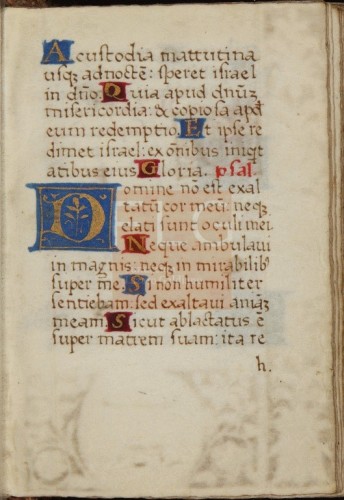 A custodia mattutina
usq; ad noctē: speret israel
in dn̄o. Quia apud dnūz
misericordia: & copiosa apd̄
eum redemptio. Et ipse re
dimet israel: ex oĩbus iniqt
atibus eius Gloria. psal.
Domine no est exal
tatũ cor meũ: neq;
elati sunt oculi mei.
Neque ambulaui
in magnis: neq; in mirabilib
super me. Si non humiliter
sentiebam: sed exaltaui aniāz
meam. Sicut ablactatus ē
super matrem suam: ita re
h.